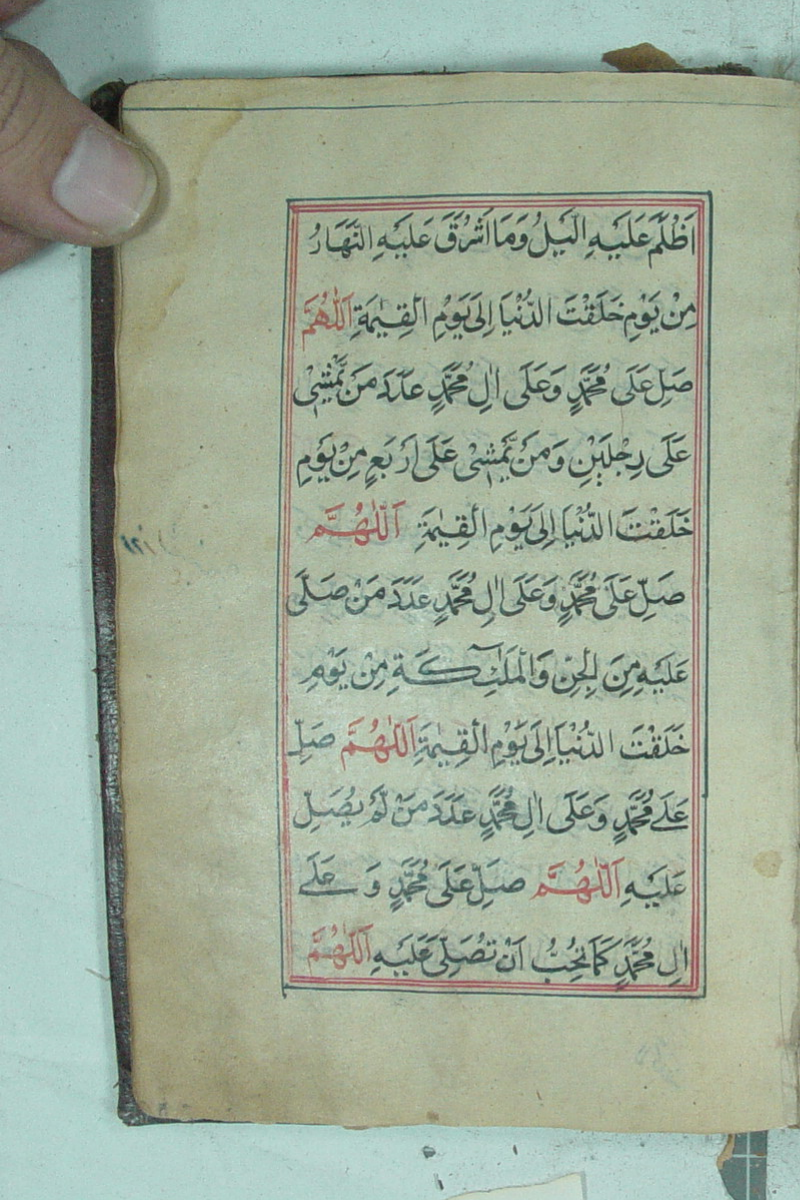 اَظْلَمَ عَلَيْهِ الَّيْلُ وَمَا اَشْرَقَ عَلَيْهِ النَّهَارُ
مِنْ يَوْمِ خَلَقْتَ الدُّنْيَا اِلٰى يَوْمِ الْقِيٰمَةِ اَللّٰهُمَّ
صَلِّ عَلٰى مُحَمَّدٍ وَعَلٰى اٰلِ مُحَمَّدٍ عَدَدَ مَنْ يَّمْشِيْ
عَلٰى رِجْلَيْنِ وَمَنْ يَّمْشِيْ عَلٰى اَرْبَعٍ مِنْ يَوْمِ
خَلَقْتَ الدُّنْيَا اِلٰى يَوْمِ الْقِيٰمَةِ اَللّٰهُمَّ
صَلِّ عَلٰى مُحَمَّدٍ وَعَلٰى اٰلِ مُحَمَّدٍ عَدَدَ مَنْ صَلّٰى
عَلَيْهِ مِنَ الْجِنِّ وَالْمَلٰٓئِكَةِ مِنْ يَوْمِ
خَلَقْتَ الدُّنْيَا اِلٰى يَوْمِ الْقِيٰمَةِ اَللّٰهُمَّ صَلِّ
عَلٰے مُحَمَّدٍ وَعَلٰى اٰلِ مُحَمَّدٍ عَدَدَ مَنْ لَّمْ يُصَلِّ
عَلَيْهِ اَللّٰهُمَّ صَلِّ عَلٰى مُحَمَّدٍ وَ عَلٰے
اٰلِ مُحَمَّدٍ كَمَا تُحِبُّ اَنْ تُصَلّٰى عَلَيْهِ اَللّٰهُمَّ